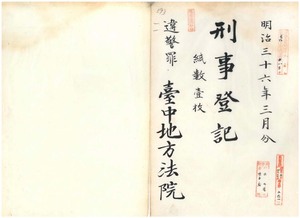 明治三十六年三月分
刑事登記
紙數壹枚
違警罪
臺中地方法院